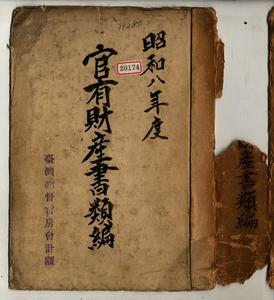 昭和八年度
官有財産書類編
20174
臺灣總督官房會計課
産書類編